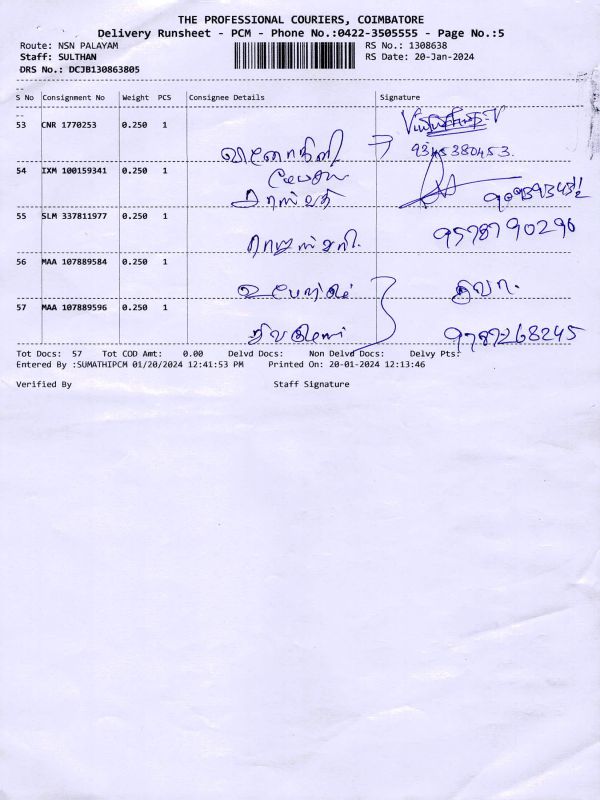 THE PROFESSIONAL COURIERS, COIMBATORE
Delivery Runsheet - PCM - Phone No.:0422-3505555 - Page No.:5
Route: NSN PALAYAM RS No.: 1308638
Staff: SULTHAN RS Date: 20-Jan-2024
DRS No.: DCJB130863805
S No Consignment No Weight PCS Consignee Details Signature
53 CNR 1770253 0.250 1
9345380453.
54 IXM 100159341 0.250 1
55 SLM 337811977 0.250 1
9578790290
56 MAA 107889584 0.250 1
57 MAA 107889596 0.250 1
9787268245
Tot Docs: 57 Tot COD Amt: 0.00 Delvd Docs: Non Delvd Docs: Delvy Pts:
Entered By :SUMATHIPCM 01/20/2024 12:41:53 PM Printed On: 20-01-2024 12:13:46
Verified By Staff Signature